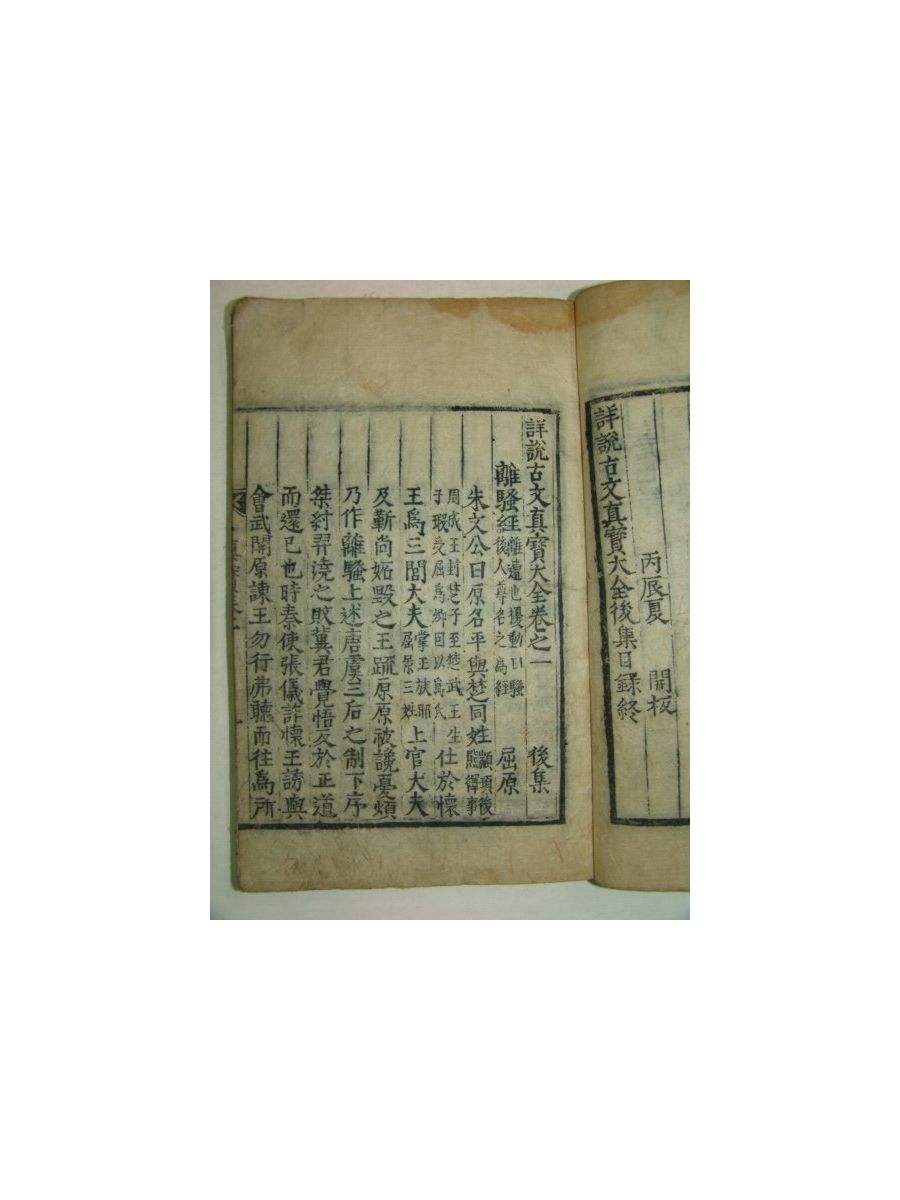 詳說古文眞寶大全後集目錄終
丙辰夏 開板
詳說古文眞寶大全卷之一 後集
離騷經 離遭也擾動曰騷後人尊名之爲經 屈原
朱文公曰原名平與楚同姓 顓頊後熊繹事
周成王封楚子至楚武王生子瑕受屈爲卿因以爲氏 仕於懷
王爲三閭大夫 掌王族昭屈景三姓 上官大夫
及靳尙妬毀之王疏原原被讒憂煩
乃作離騷上述唐虞三后之制下序
桀紂羿澆之敗冀君覺悟反於正道
而還己也時秦使張儀詐懷王誘與
會武關原諫王勿行弗聽而往爲所